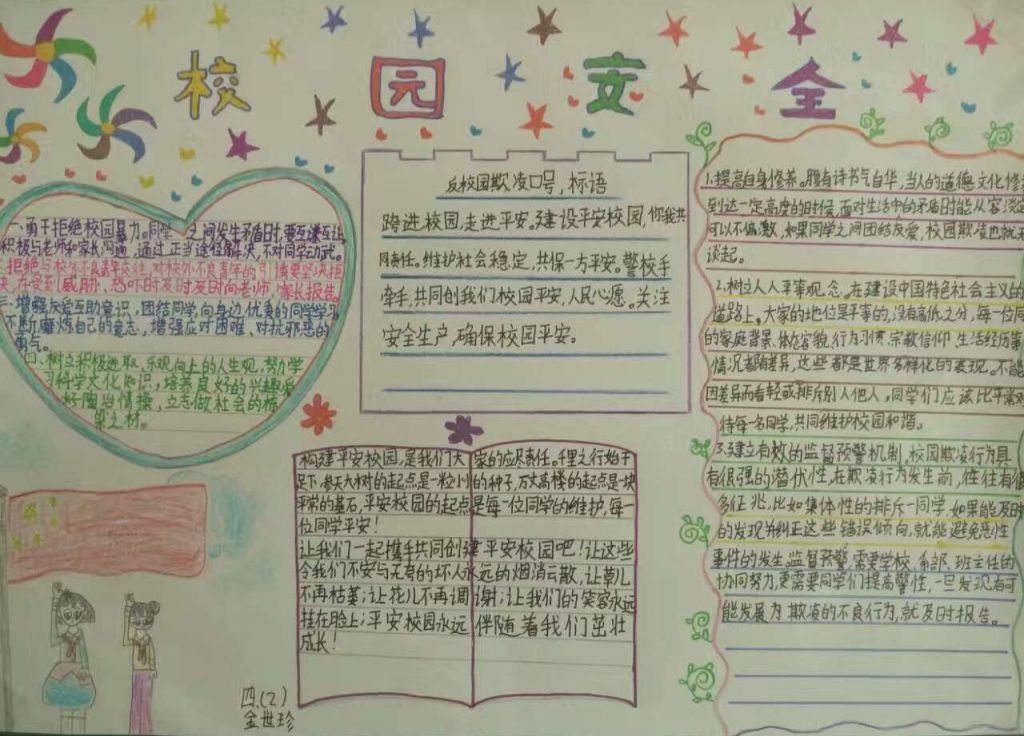 校园安全
一、勇于拒绝校园暴力。同学之间发生矛盾时,要互谦互让,
积极与老师和家长沟通,通过正当途径解决,不对同学动武。
拒绝与校外不良青年交往,对校外不良青年的引诱要坚决拒
决,在受到威胁、恐吓时及时向老师 家长报告。
三、增强友爱互助意识,团结同学,向身边优秀的同学学习
不断磨炼自己的意志,增强应对困难、对抗邪恶的
勇气。
树立积极进取、乐观向上的人生观,努力学
习科学文化知识,培养良好的兴趣爱
好陶冶情操,立志做社会的栋
梁之材。
反校园欺凌口号,标语
跨进校园,走进平安。建设平安校园,你我共
同责任。维护社会稳定,共保一方平安。警校手
牵手,共同创我们校园平安,人民心愿。关注
安全生产,确保校园平安。
构建平安校园,是我们大家的应尽责任。千里之行始于
足下,参天大树的起点是一粒小的种子,万丈高楼的起点是一块
平常的基石,平安校园的起点是每一位同学的维护,每一
位同学平安!
让我们一起携手共同创建平安校园吧!让这些
令我们不安与无辜的坏人永远的烟消云散,让草儿
不再枯萎;让花儿不再调谢;让我们的笑容永远
挂在脸上;平安校园永远伴随着我们茁壮
成长!
1.提高自身修养。腹有诗书气自华,当人的道德文化修
到达一定高度的时候,面对生活中的矛盾时能从容淡
可以不偏激,如果同学之间团结友爱,校园欺凌也就
谈起。
2.树立人人平等观念。在建设中国特色社会主义的
道路上。大家的地位是平等的,没有高低之分,每一位同
的家庭背景、体态容貌、行为习惯、宗教信仰、生活经历等
情况都有差异,这些都是世界多样化的表现。不能
因差异而看轻或排斥别人他人,同学们应该
待每一名同学,共同维护校园和谐。
3.建立有效的监督预警机制。校园欺凌行为具
有很强的潜伏性,在欺凌行为发生前,往往有
多征兆,比如集体性的排斥一同学,如果能及时
的发现并纠正这些错误倾向,就能避免恶性
事件的发生。监督预警,需要学校、系部、班主任的
协同努力,更需要同学们提高警性,一旦发现有可
能发展为欺凌的不良行为,就及时报告。
四.(2)
金世珍